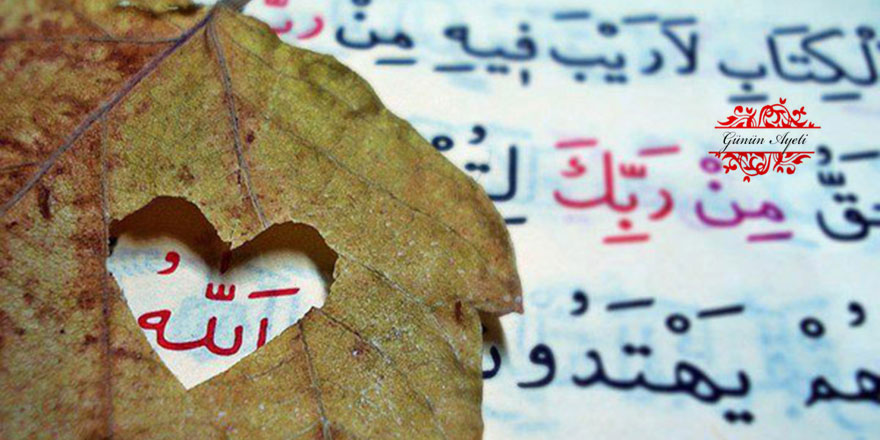 لْكِتَابِ لَارَيْبَ فِيهِ مِنْ رَبِّ
Günün Ayeti
حَقُّ مِنْ رَبِّكَ لِتُ
اَللّٰهُ
هُمْ يَهْتَدُونَ